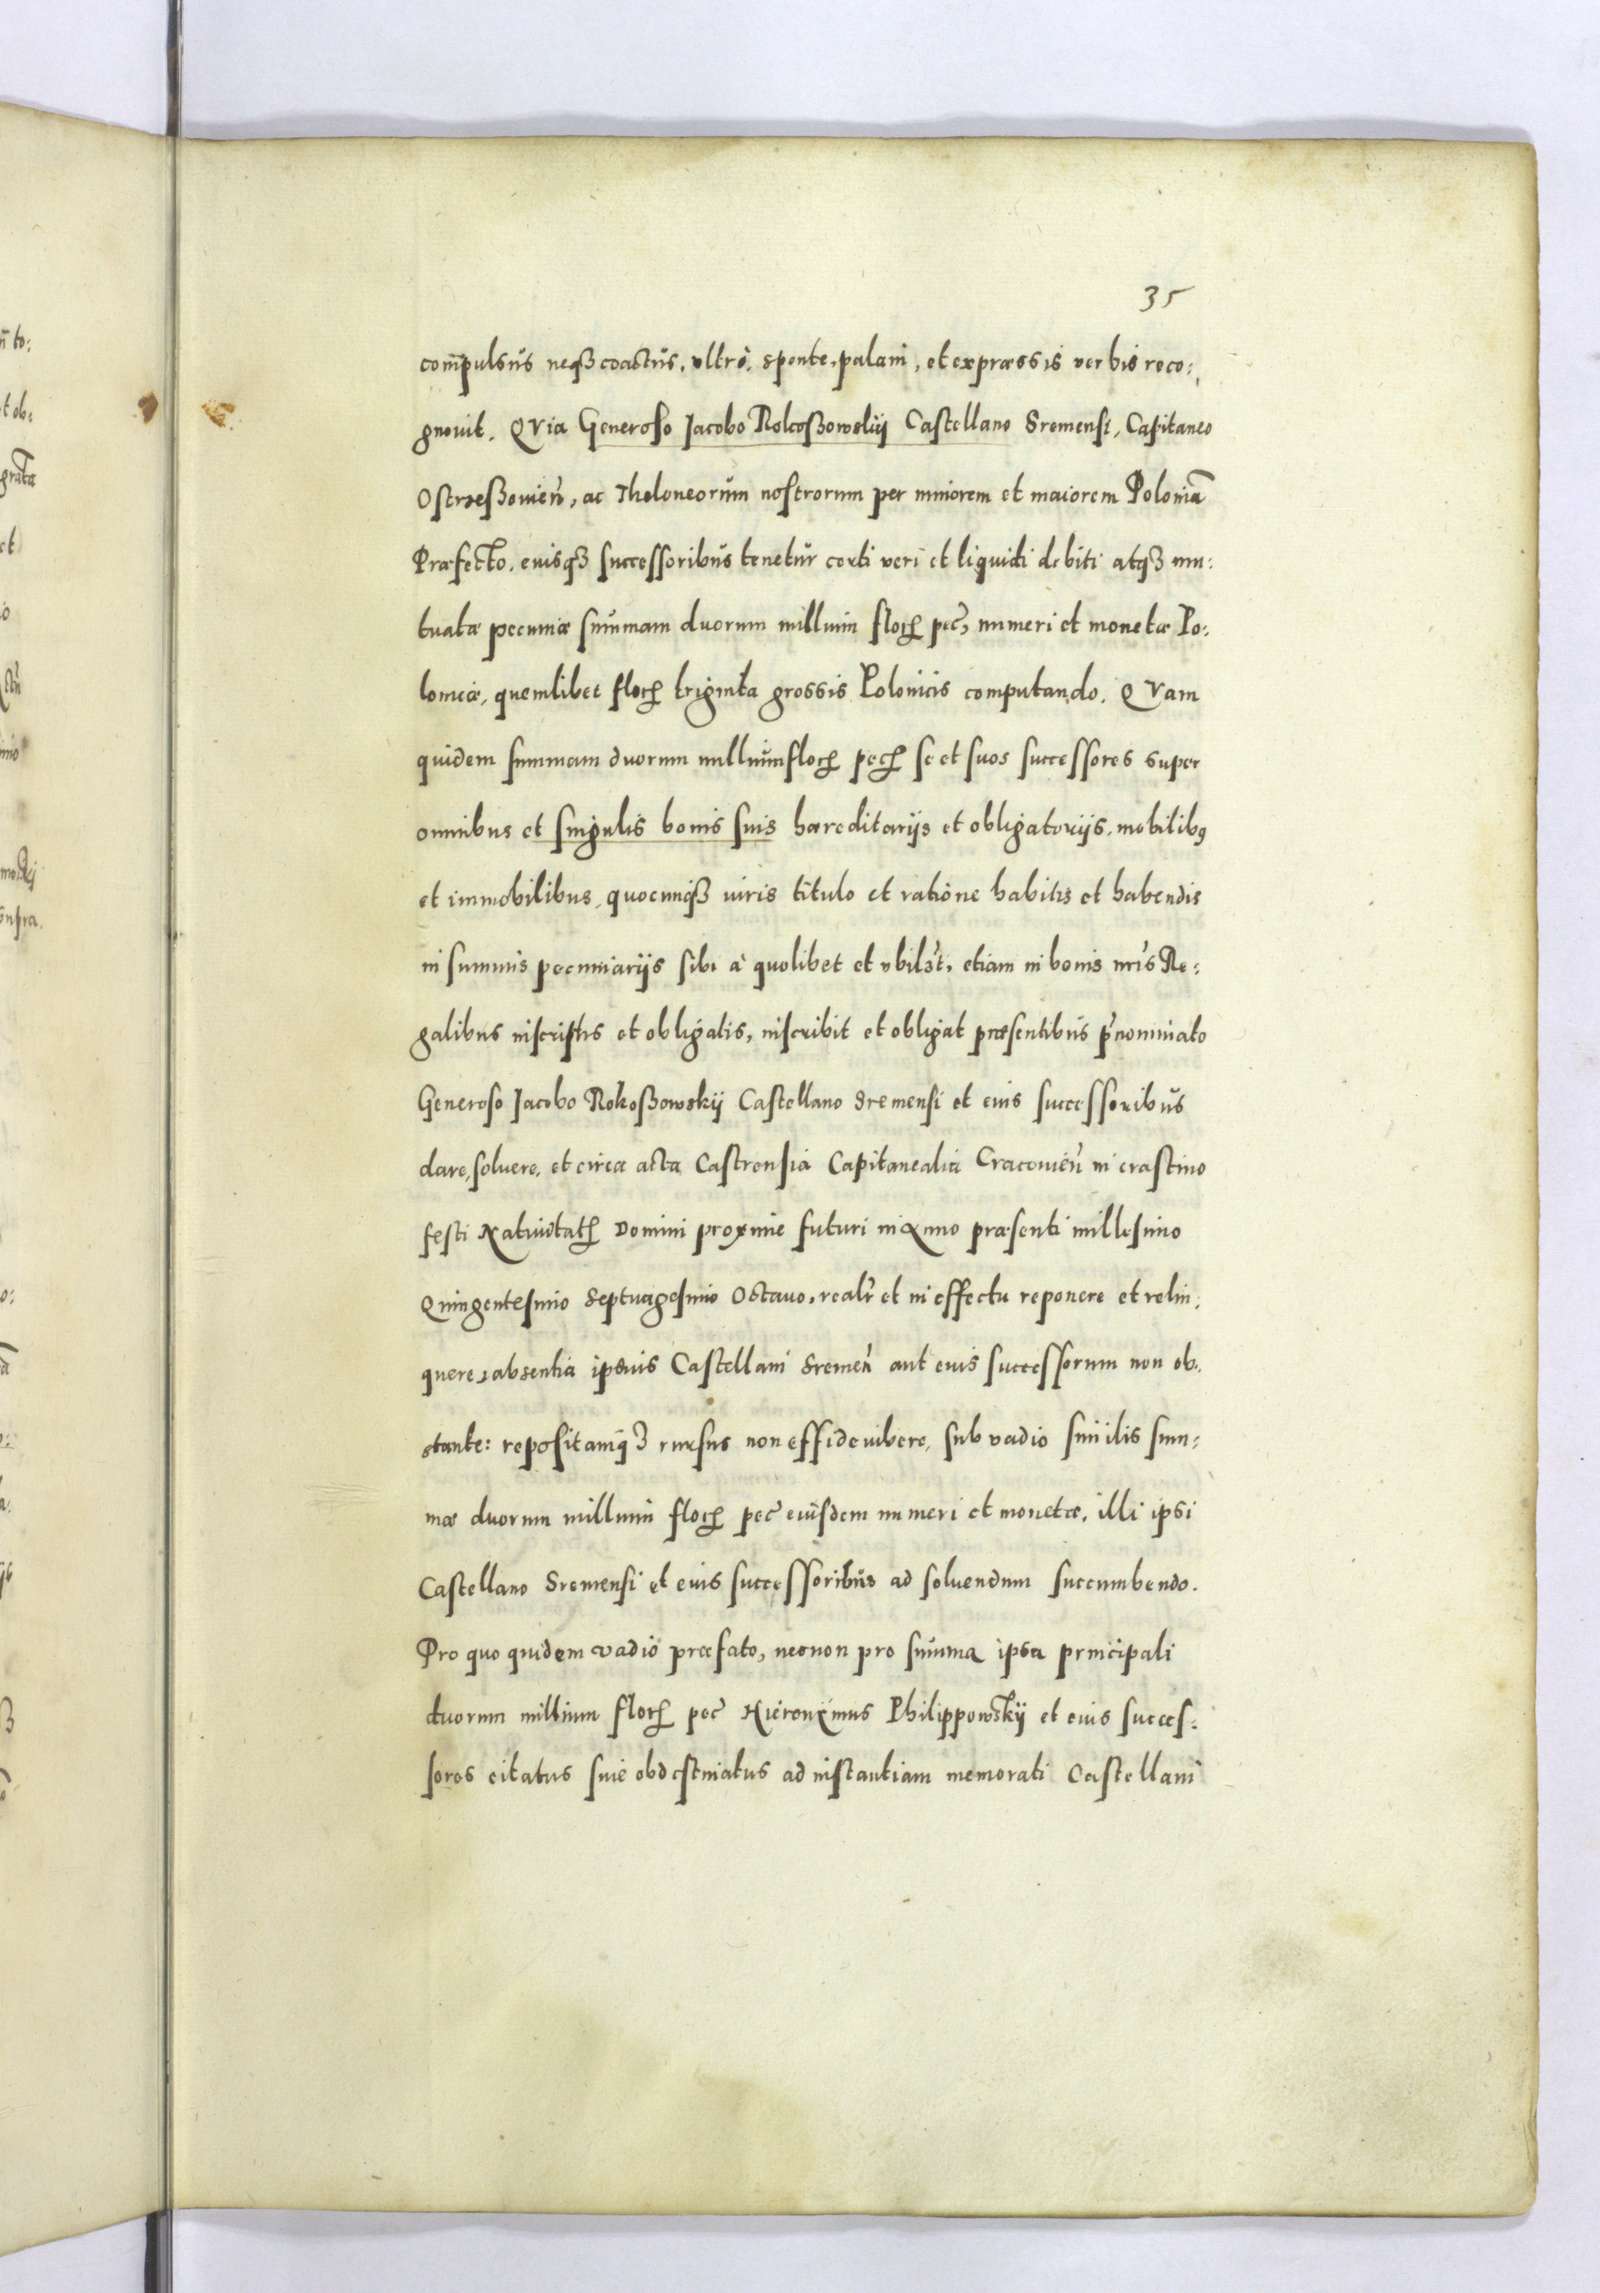 35
compulsus neqꝫ coactus, ultrò, sponte, palam, et expræssis verbis reco:
gnouit. QVia Generoso Jacobo Rokoßowskij Castellano Sremensi, Capitaneo
Ostrzeßouieñ, ac Theloneorum nostrorum per minorem et maiorem Poloniã
Præfecto, euisqꝫ successoribus tenetur certi veri et liquidi debiti atqꝫ mu:
tuatæ pecuniæ summam duorum millium floꝝ pec̃, numeri et monetæ Po:
lonicæ, quemlibet floꝝ triginta grossis Polonicis computando. QVam
quidem summam duorum millium floꝝ pecꝝ se et suos successores super
omnibus et singulis bonis suis hæreditarijs et obligatorijs, mobilibꝯ
et immobilibus, quocunqꝫ iuris titulo et ratione habitis et habendis
in summis pecuniarijs sibi à quolibet et vbilꝫt, etiam in bonis nr̃is Re:
galibus inscriptis et obligatis, inscribit et obligat præsentibus p̃nominato
Generoso Jacobo Rokoßowskij Castellano Sremensi et eius successoribus
dare, soluere, et circa acta Castrensia Capitanealia Cracouieñ in crastino
festi Natiuitatꝭ Domini proxime futuri in Anno præsenti millesimo
Quingentesimo Septuagesimo Octauo, realr̃ et in effectu reponere et relin:
quere, absentia ipsius Castellani Sremeñ aut eius successorum non ob:
stante: repositamqꝫ rursus non effidevibere, sub vadio similis sum:
mæ duorum millium floꝝ pec̃ eiusdem numeri et monetæ, illi ipsi
Castellano Sremensi et eius successoribus ad soluendum succumbendo.
Pro quo quidem vadio præfato, necnon pro summa ipsa principali
duorum millium floꝝ pec̃ Hieronimus Philippowskij et eius succes:
sores citatus siue ad instantiam memorati Castellani